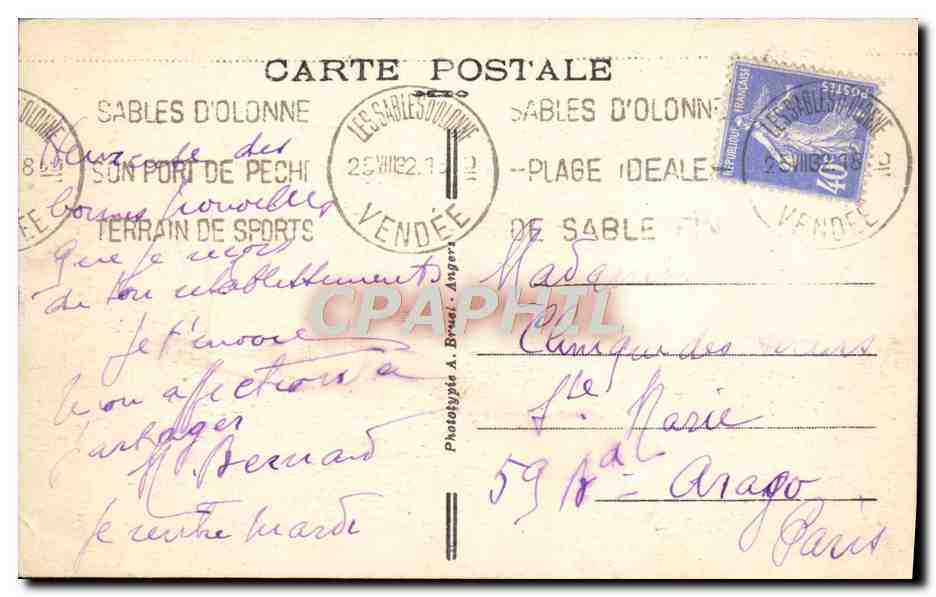 CARTE POSTALE
SABLES D'OLONNE
SON PORT DE PECHE
TERRAIN DE SPORTS
LES SABLES D'OLONNE
VENDÉE
SABLES D'OLONNE
PLAGE IDEALE
DE SABLE FIN
REPUBLIQUE FRANÇAISE
POSTES
40c
LES SABLES D'OLONNE
VENDÉE
Heureuse des
bonnes nouvelles
que je reçois
de ton rétablissement
Je t'envoie
mon affection à
partager
M. Bernard
je rentre mardi
Phototypie A. Bruel - Angers
CPAPHIL
Madame
Clinique des
Ste Marie
59 Bd Arago
Paris